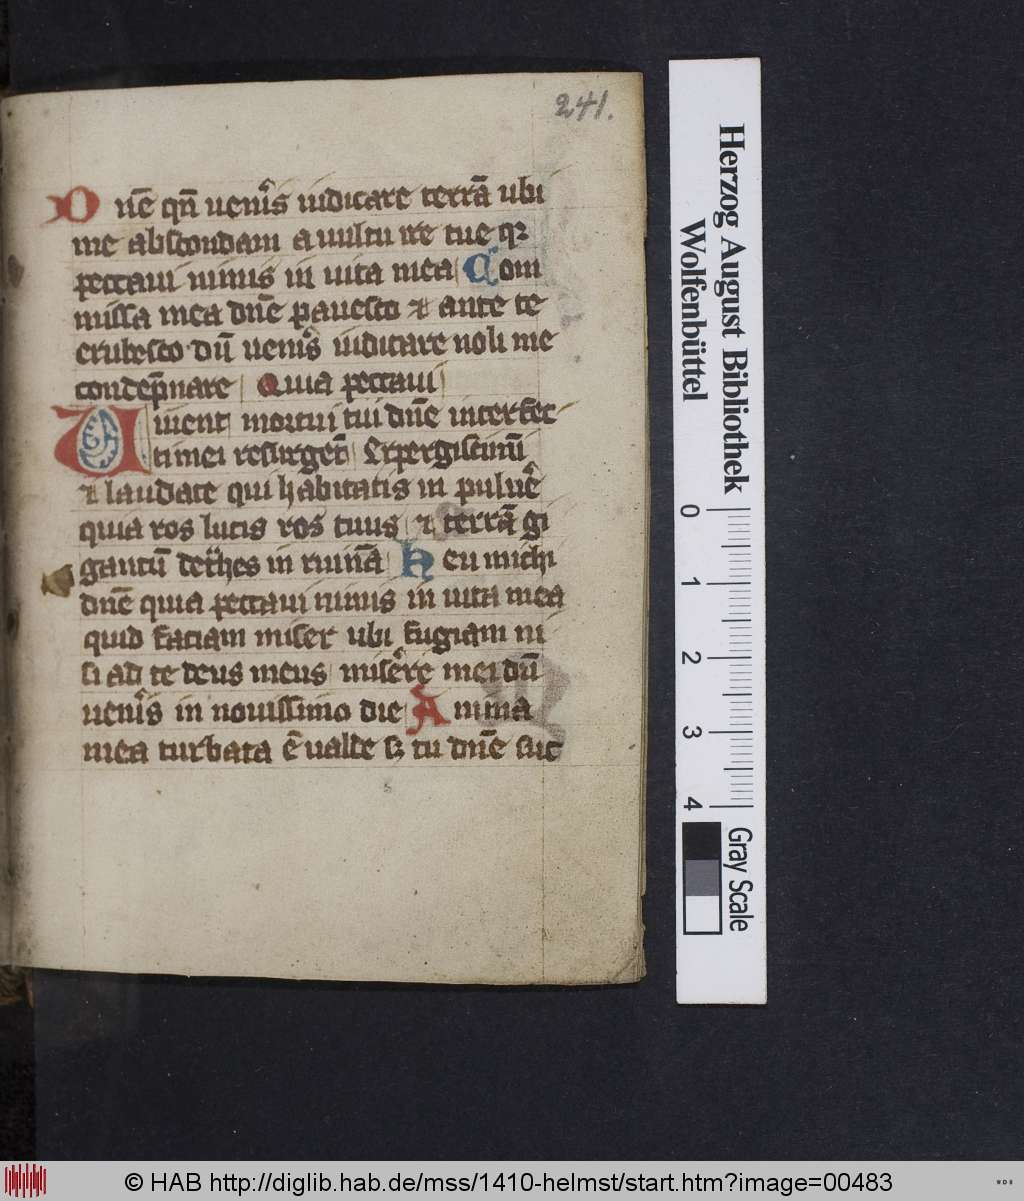 241.
Dn̄e qn̄ ueni᷒s iudicare terrā ubi
me abscondam a uultu ire tue qꝛ
peccaui nimis in uita mea Com
missa mea dn̄e pauesco ⁊ ante te
erubesco dū ueni᷒s iudicare noli me
condēpnare Quia peccaui
Uiuent mortui tui dn̄e interfec
ti mei resurgēt Exꝑgiscimī
⁊ laudate qui habitatis in puluē
quia ros lucis ros tuus ⁊ terrā gi
gantū det᷒hes in ruinā Heu michi
dn̄e quia peccaui nimis in uita mea
quid faciam miser ubi fugiam ni
si ad te deus meus mise᷒re mei dū
ueni᷒s in nouissimo die Anima
mea turbata ē ualde sꝫ tu dn̄e suc
Herzog August Bibliothek
Wolfenbüttel
0 1 2 3 4
Gray Scale
© HAB http://diglib.hab.de/mss/1410-helmst/start.htm?image=00483